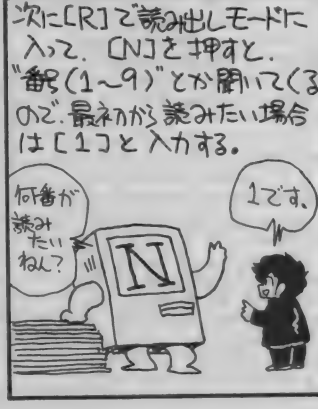 次に[R]で読み出しモードに
入って、[N]を押すと、
"番号(1〜9)"とか聞いてくる
ので、最初から読みたい場合
は[1]と入力する。
何番が
読み
たい
ねん?
1です。
N